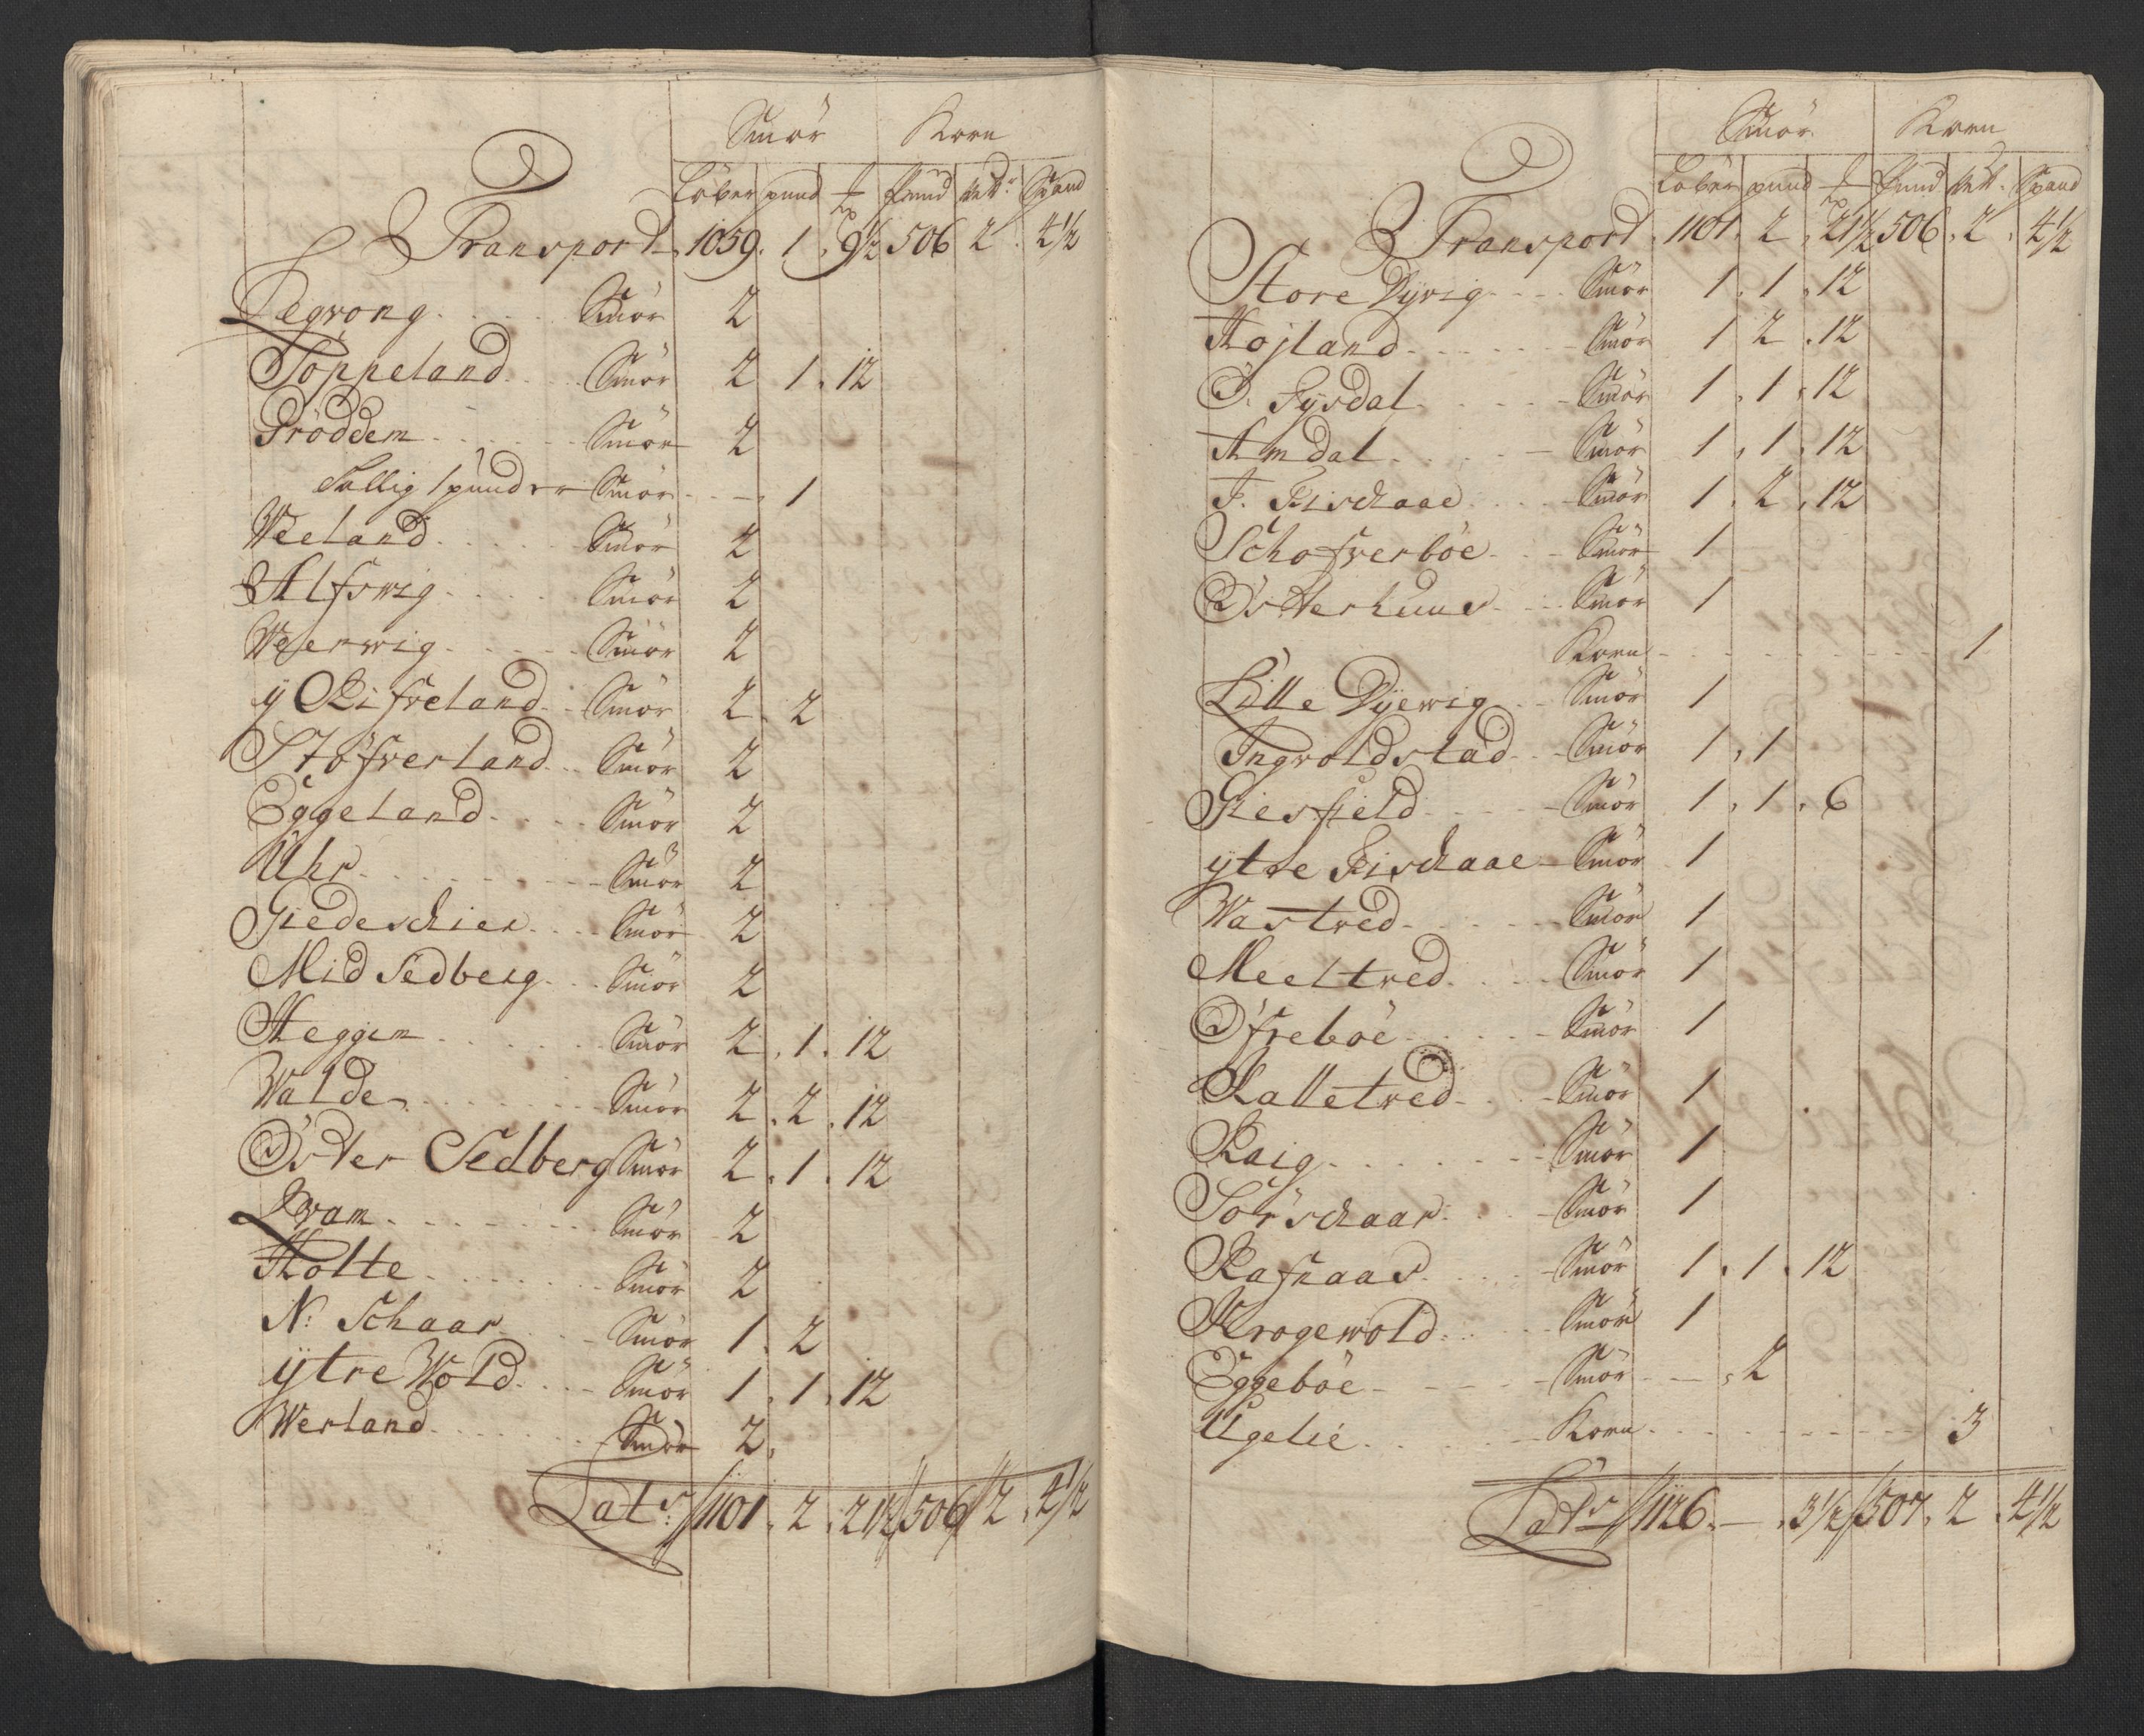 Smör Korn
Löber pund ℔ Pund Vett: Spand
Transport 1059. 1. 9½ 506 2. 4½
Tegvong Smör 2
Töppeland Smör 2 1. 12
Tröddem Smör 2
Sallig 1 pund Smör 1
Weeland Smör 2
Alfswig Smör 2
Weerwig Smör 2
y Rifveland Smör 2. 2
Stöfverland Smör 2
Eggeland Smör 2
Uhr Smör 2
Giedeschier Smör 2
Mid Sedberg Smör 2
Heggem Smör 2. 1. 12
Walde Smör 2. 2. 12
Öster Sedberg Smör 2. 1. 12
Qvam Smör 2
Holte Smör 2
N: Schaar Smör 1. 2
ytre Wold Smör 1. 1. 12
Werland Smör 2.
Lat:s 1101. 2. 21½ 506 2. 4½
Smör Korn
Löber pund ℔ Pund Vett. Spand
Transport 1101. 2. 21½ 506. 2. 4½
Store Dyvig Smör 1. 1. 12
Højland Smör 1 2. 12
Ö. Sysdal Smör 1. 1. 12
Amdal Smör 1. 1. 12
J. Fischaae Smör 1. 2. 12
Schofverböe Smör 1
Österhuus Smör 1
Korn 1
Lille Dyevig Smör 1
Ingvoldstad Smör 1. 1
Giesfield Smör 1. 1. 6
ytre Fischaae Smör 1
Wastved Smör 1
Meeltved Smör 1
Öfreböe Smör 1
Kalletved Smör 1
Raig Smör 1
Sörschaar Smör 1
Rafnaas Smör 1. 1. 12
Krogewold Smör 1
Eggeböe Smör . 2
Ugelie Korn 3
Lat:s 1126. — . 3½ 507. 2. 4½